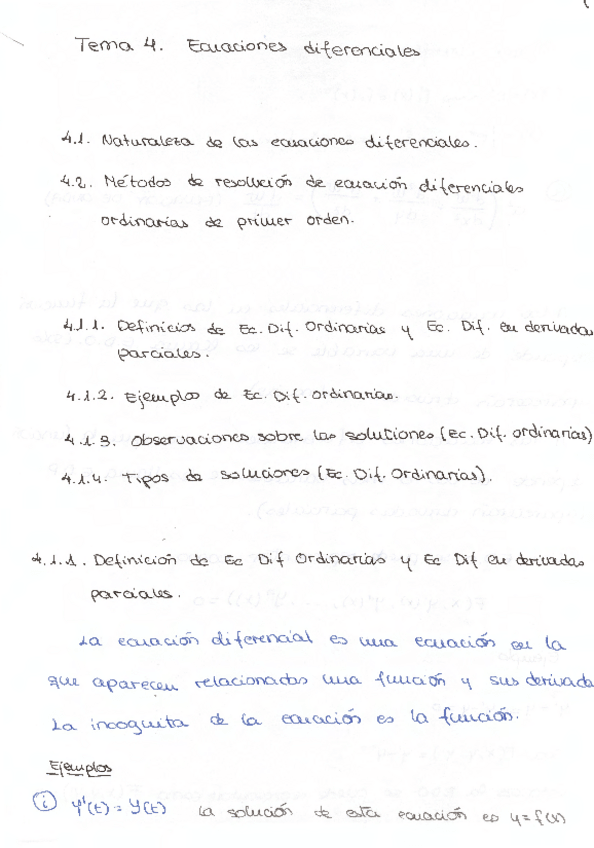 Tema 4. Ecuaciones diferenciales
4.1. Naturaleza de las ecuaciones diferenciales.
4.2. Métodos de resolución de ecuación diferenciales
ordinarias de primer orden.
4.1.1. Definicios de Ec. Dif. Ordinarias y Ec. Dif. en derivadas
parciales.
4.1.2. Ejemplos de Ec. Dif. ordinarias.
4.1.3. Observaciones sobre las soluciones (Ec. Dif. ordinarias)
4.1.4. Tipos de soluciones (Ec. Dif. Ordinarias).
4.1.1. Definición de Ec Dif Ordinarias y Ec Dif en derivadas
parciales.
La ecuación diferencial es una ecuación en la
que aparecen relacionados una función y sus derivada
La incognita de la ecuación es la función.
Ejemplos
i y'(t) = y(t) La solución de esta ecuación es y = f(x)